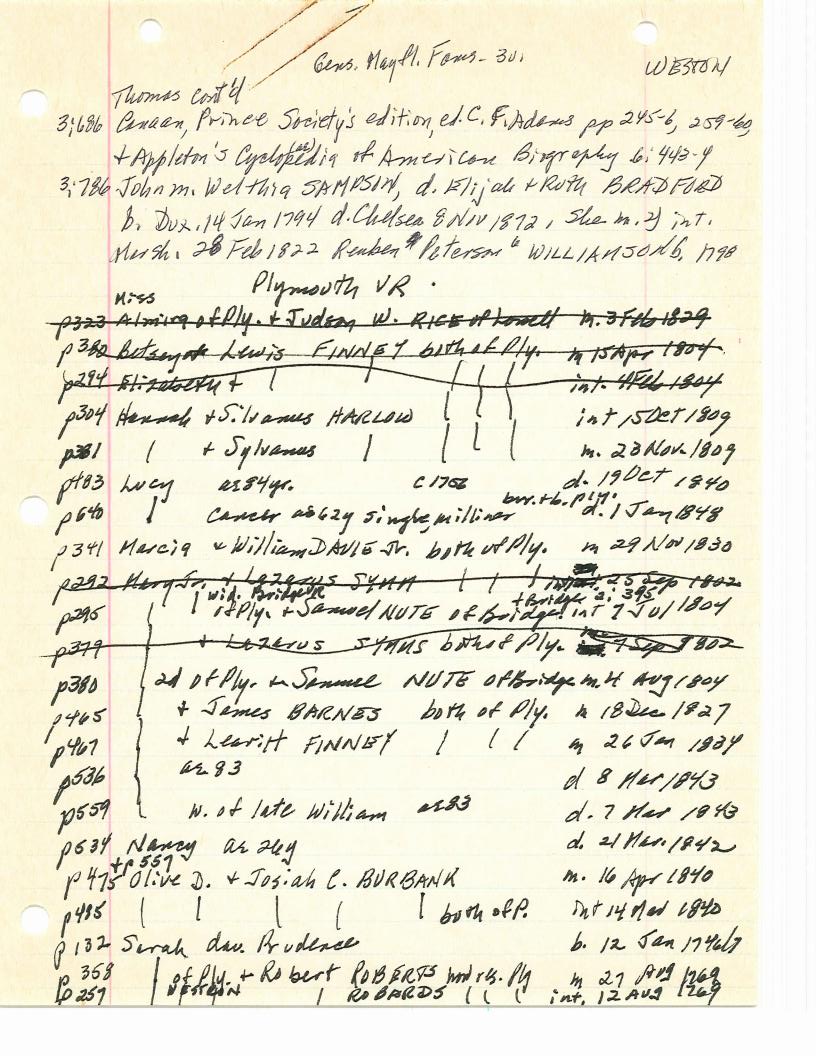 Gens. Mayfl. Fams - 30.
WESTON
Thomas cont'd
3;686 Canaan, Prince Society's edition, ed. C. F. Adams pp 245-6, 259-60,
+ Appleton's Cyclopedia (ae) of American Biography 6: 443-4
3;786 John m. Welthia SAMPSON, d. Elijah + Ruth BRADFORD
b. Dux. 14 Jan 1794 d. Chelsea 8 Nov 1872, She m. 2) int.
Marsh. 28 Feb 1822 Reuben Peterson WILLIAMSON b. 1798
Plymouth VR.
Miss
p323 Almira of Ply. + Judson W. RICE of Lowell m. 3 Feb 1829
p380 Betsey + Lewis FINNEY both of Ply. m 15 Apr 1804
p294 Elizabeth + | | | | | int. 4 Feb 1804
p304 Hannah + Silvanus HARLOW | | | int 15 Oct 1809
p381 | + Sylvanus | | | | m. 23 Nov. 1809
p483 Lucy ae 84 yr. c 1756 d. 19 Oct 1840
bur. + b. Ply.
p640 | Cancer ae 62y single, milliner d. 1 Jan 1848
p341 Marcia + William DAVIE Jr. both of Ply. m 29 Nov 1830
p292 Mary Jr. + Lazarus SYMM | | | int 25 Sep 1802
wid. Bridge VR + Bridge 2: 395
p295 | | of Ply. + Samuel NUTE of Bridge. int 7 Jul 1804
p379 + Lazarus SYMMS both of Ply. m. 7 Sep 1802
p380 2d of Ply. + Samuel NUTE of Bridge m. 4 Aug 1804
p465 + James BARNES both of Ply. m 18 Dec 1827
p467 + Leavitt FINNEY | | | m 26 Jan 1834
p536 ae 83 d 8 Mar 1843
p559 w. of late William ae 83 d. 7 Mar 1843
p634 Nancy ae 26y d. 21 Mar. 1842
+ p 557
p475 Olive D. + Josiah C. BURBANK m. 16 Apr 1840
p495 | | | | | both of P. int 14 Mar 1840
p 132 Sarah dau. Prudence b. 12 Jan 1746/7
p 358 | of Ply + Robert ROBERTS Ply m 27 Aug 1769
p 257 | WESTRON | ROBARDS | | | int. 12 Aug 1769